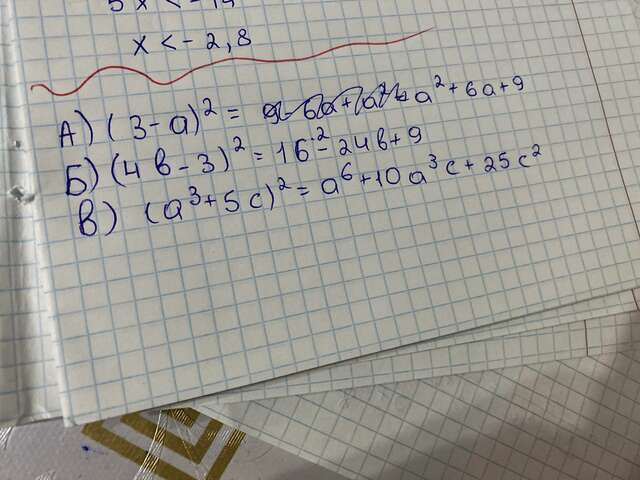 5x < -14
x < - 2,8
А) (3-a)² = a² + 6a + 9
Б) (4в - 3)² = 16² - 24в + 9
В) (a³ + 5c)² = a⁶ + 10a³c + 25c²